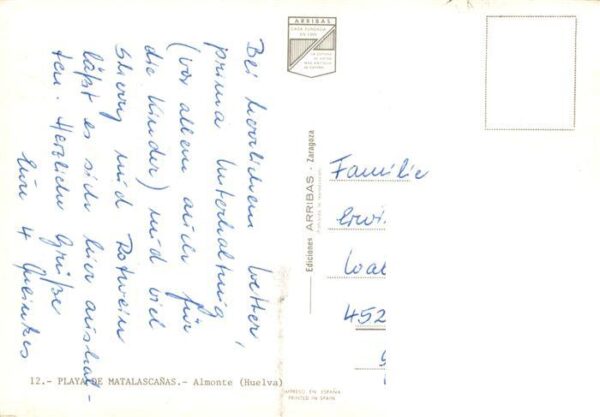 Bei herrlichem Wetter,
prima Unterhaltung
(vor allem auch für
die Kinder) und viel
Sherry und Rotwein
läßt es sich hier aushal-
ten. Herzliche Grüße
Eure 4
12.- PLAYA DE MATALASCAÑAS.- Almonte (Huelva)
ARRIBAS
CASA FUNDADA
EN
Ediciones ARRIBAS - Zaragoza
IMPRESO EN ESPAÑA
PRINTED IN SPAIN
Familie
452